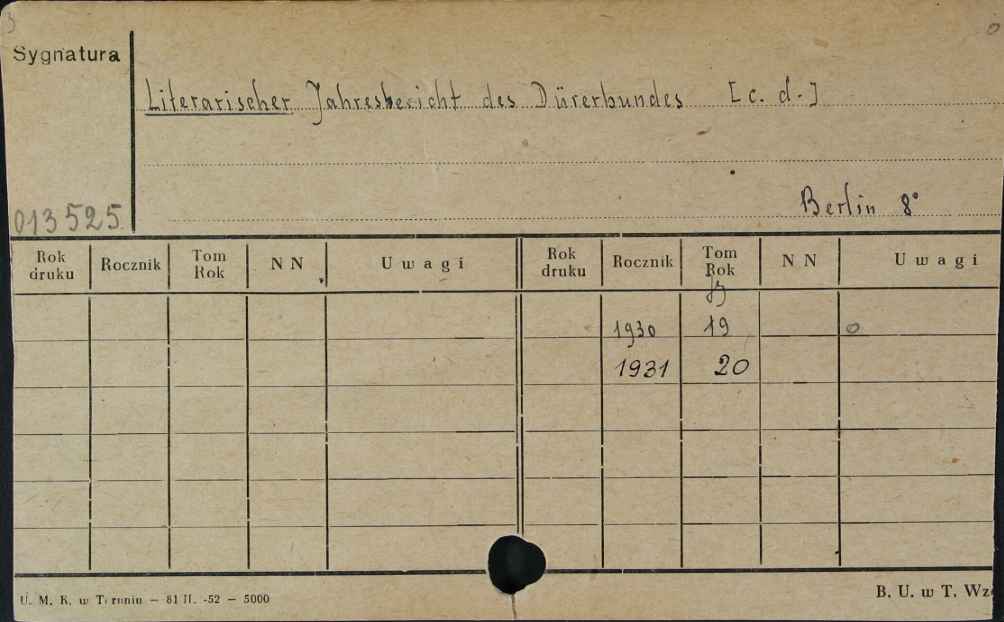 3
Sygnatura
Literarischer Jahresbericht des Dürerbundes [c. d.]
Berlin 8°
013525
Rok druku Rocznik Tom Rok NN Uwagi Rok druku Rocznik Tom Rok NN Uwagi
1930 19
1931 20
U. M. K. w Toruniu — 81 II. -52 — 5000
B. U. w T. Wz